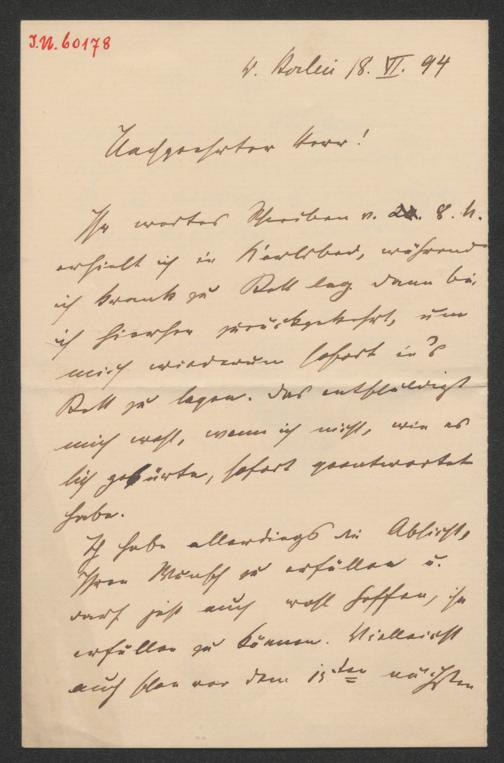 I.N. 60178
W. Berlin 18. VI. 94
Hochgeehrter Herr!
Ihr wertes Schreiben v. 8. d.
erhielt ich in Karlsbad, während
ich krank zu Bett lag. Dann bin
ich hierher zurückgekehrt, um
mich wiederum sofort in's
Bett zu legen. Das entschuldigt
mich wohl, wenn ich nicht, wie es
sich gehörte, sofort geantwortet
habe.
Ich habe allerdings die Absicht,
Ihren Wunsch zu erfüllen u.
darf jetzt auch wohl hoffen, ihn
erfüllen zu können. Vielleicht
auch schon vor dem 15ten nächsten